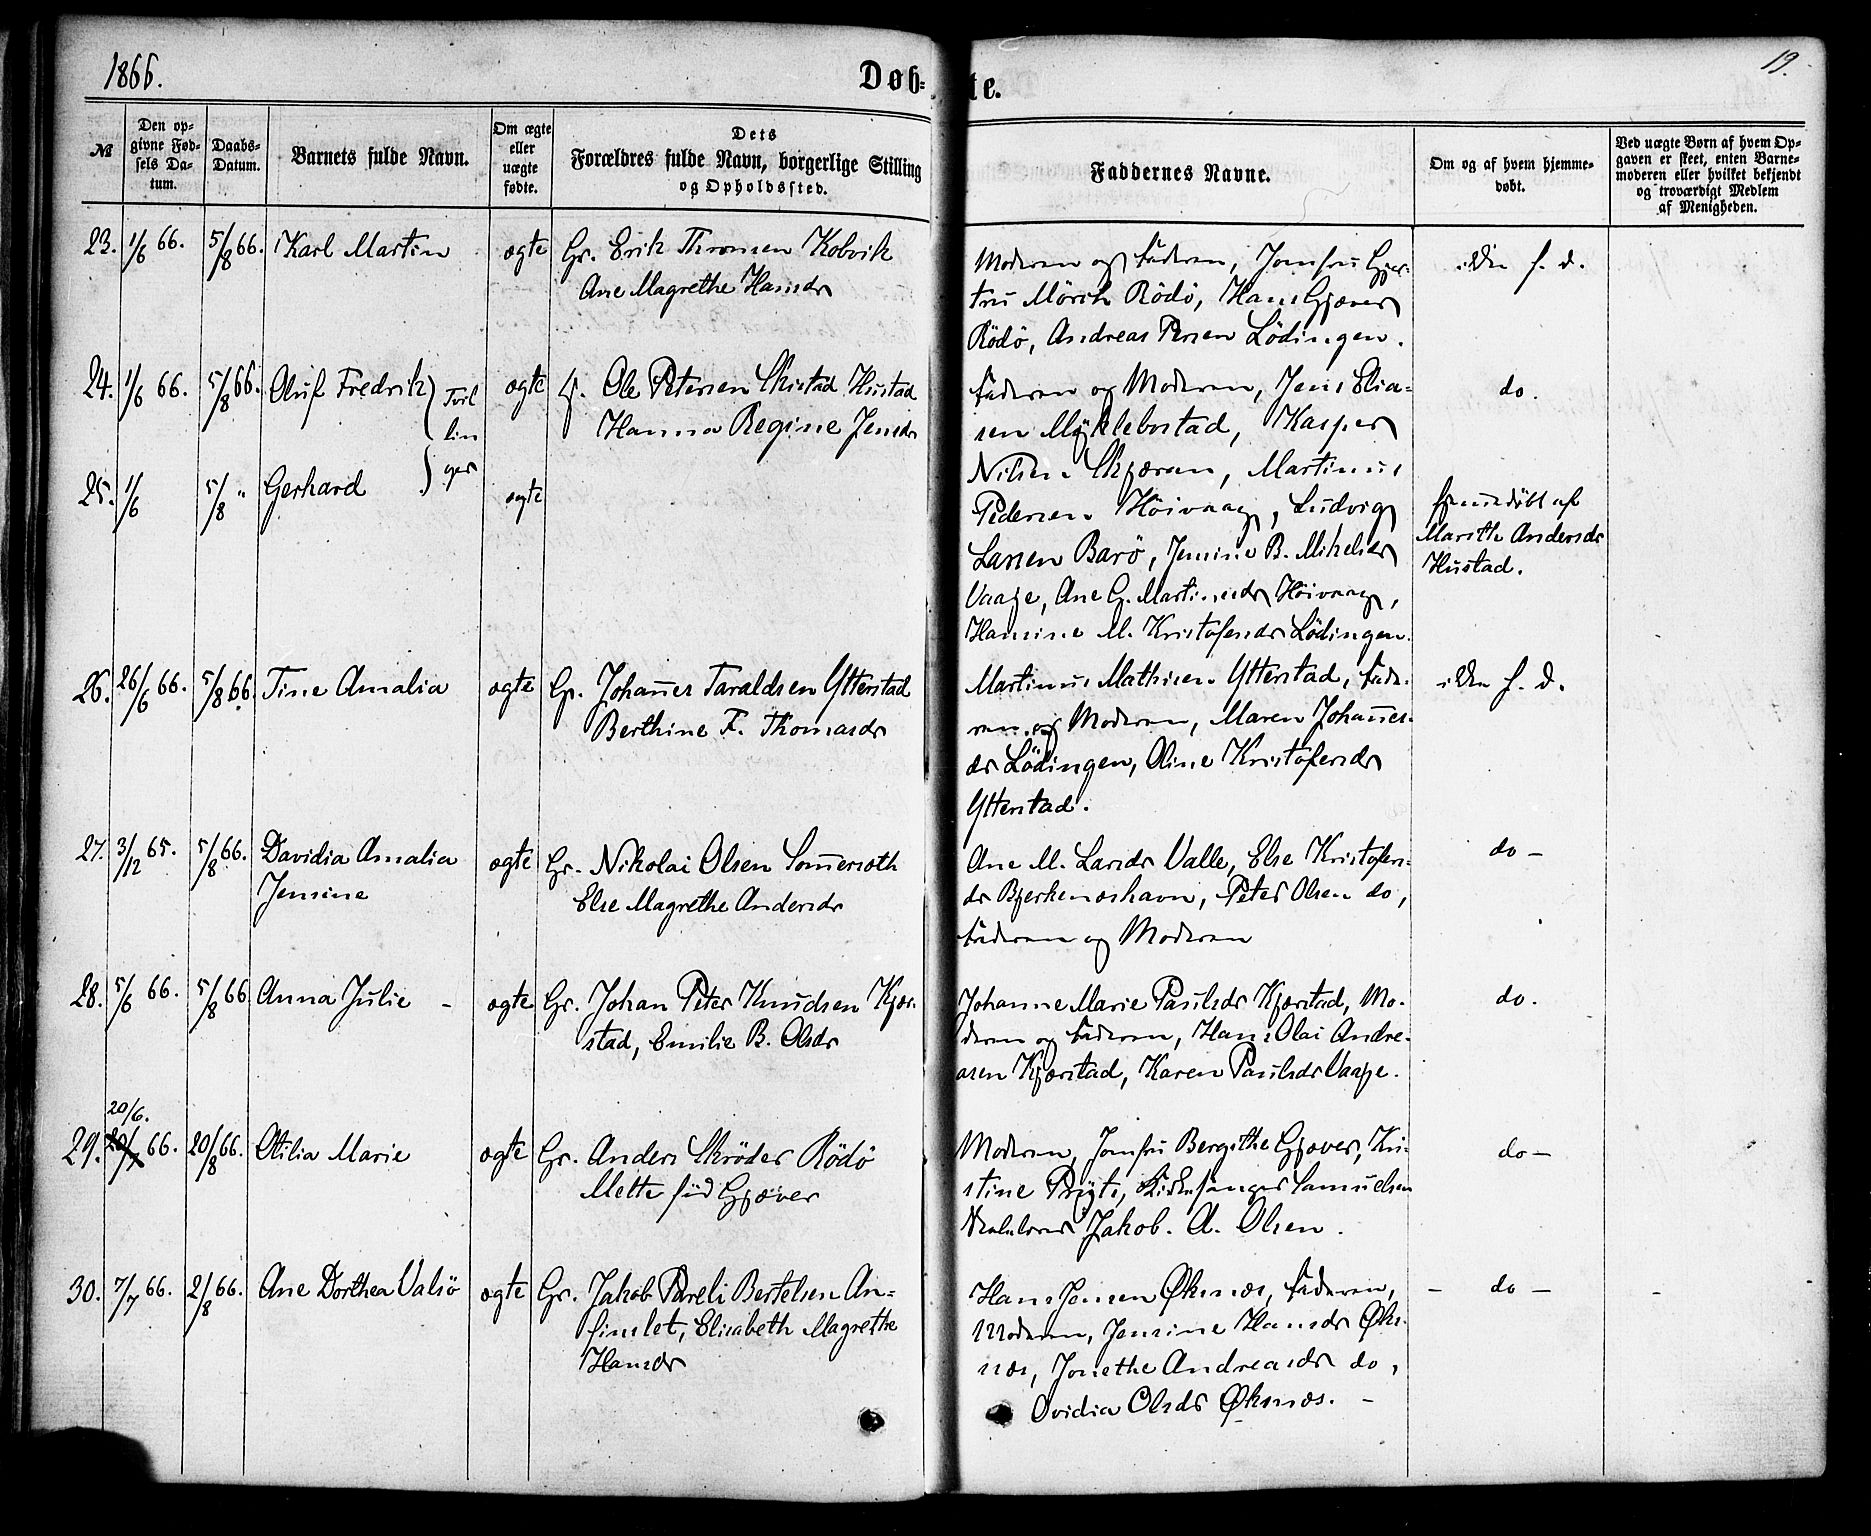 1866.
Døb-
te.
19.
№
Den op-
givne Fød-
sels Da-
tum.
Daabs-
Datum.
Barnets fulde Navn.
Om ægte
eller
uægte
fødte.
Dets
Forældres fulde Navn, borgerlige Stilling
og Opholdssted.
Faddernes Navne.
Om og af hvem hjemme-
døbt.
Ved uægte Børn af hvem Op-
gaven er skeet, enten Barne-
moderen eller hvilket bekjendt
og troværdigt Medlem
af Menigheden.
23. 1/6 66. 5/8 66. Karl Martin ægte Gr. Erik Thomsen Kobvik
Ane Magrethe Hansdr
Moderen og Faderen, Jomfru Gjer-
tru Mörch Rödö, Hans Gjæver
Rödö, Andreas Persen Lödingen.
ikke h. d.
24. 1/6 66. 5/8 66. Oluf Fredrik Tvil ægte Ole Petersen Hustad
lin
Hanna Regine Jensdr
Faderen og Moderen, Jens Elia-
sen Myklebostad, Kasper
do.
25. 1/6 5/8 " Gerhard ger ægte
Nilsen Skjæran, Martinus
Pedersen Höivaag, Ludvig
Larsen Barö, Jensine B. Mikelsdr
Vaage, Ane G. Martinusdr Höivaag,
Hansine M. Kristofersdr Lödingen.
hjemmedöbt af
Marith Andersdr
Hustad.
26. 26/6 66. 5/8 66. Tine Amalia ægte Gr. Johan̄es Taraldsen Ytterstad
Berthine F. Thomasdr
Martinus Mathisen Ytterstad, Fade-
ren og Moderen, Maren Johan̄es-
dr Lödingen, Oline Kristofersdr
Ytterstad.
ikke h. d.
27. 3/12 65. 5/8 66. Davidia Amalia ægte Gr. Nikolai Olsen Som̄eroth
Jensine
Else Magrethe Andersdr
Ane M. Larsdr Valle, Else Kristofers-
dr Bjerkenæshavn, Peter Olsen do,
Faderen og Moderen
do -
28. 5/6 66. 5/8 66 Anna Julie - ægte Gr. Johan Peter Knudsen Kjær-
stad, Emilie B. Olsdr
Johanne Marie Paulsdr Kjærstad, Mo-
deren og Faderen, Hans Olai Andre-
asen Kjærstad, Karen Paulsdr Vaage.
do.
20/6.
29. 20/7 66. 20/8 66. Otilia Marie ægte Gr. Anders Skröder Rödö
Mette föd Gjæver
Moderen, Jomfru Bergithe Gjæver, Kri-
stine Pryts, Kirkesanger Samuelsen
Skolelærer Jakob. A. Olsen.
do -
30. 7/7 66. 2/8 66. Ane Dorthea Valsö ægte Gr. Jakob Pareli Bertelsen An-
finslet, Elisabeth Magrethe
Hansdr
Hans Jensen Øksnæs, Faderen,
Moderen, Jensine Hansdr Øks-
næs, Jonethe Andreasdr do,
Ovidia Olsdr Øksnæs. -
- do -